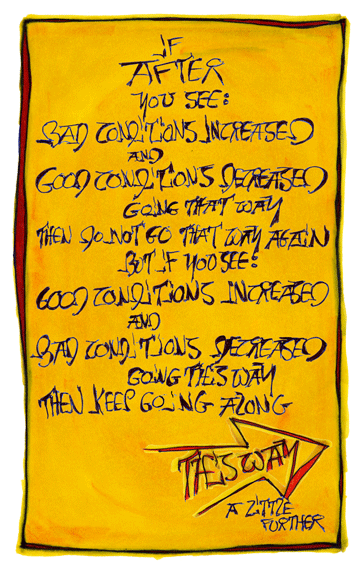 IF
AFTER
YOU SEE:
BAD CONDITIONS INCREASED
AND
GOOD CONDITIONS DECREASED
GOING THAT WAY
THEN DO NOT GO THAT WAY AGAIN
BUT IF YOU SEE:
GOOD CONDITIONS INCREASED
AND
BAD CONDITIONS DECREASED
GOING THIS WAY
THEN KEEP GOING ALONG
THIS WAY
A LITTLE
FURTHER